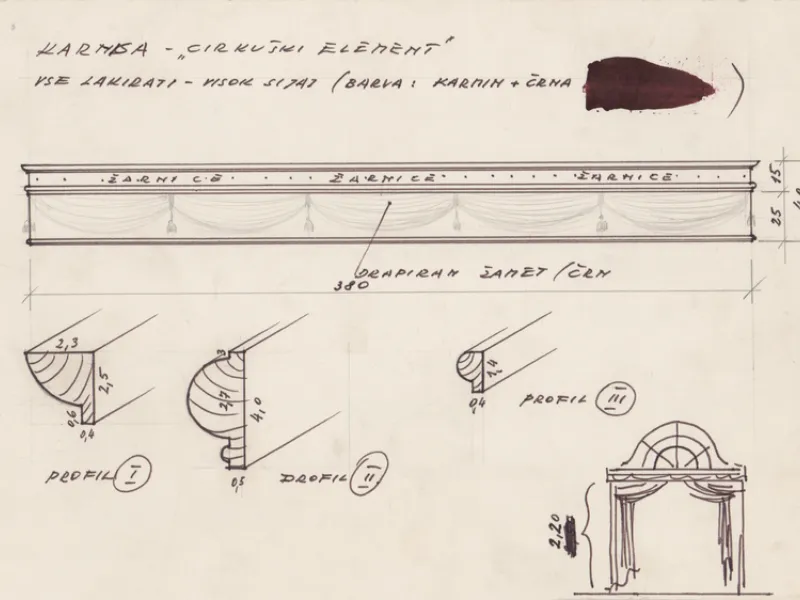 KARNISA - „CIRKUŠKI ELEMENT"
VSE LAKIRATI - VISOK SIJAJ (BARVA: KARMIN + ČRNA )
ŽARNICE ŽARNICE ŽARNICE
15
25
DRAPIRAN ŽAMET / ČRN
380
2,3
2,5
0,6
0,4
PROFIL I
3
2,7
4,0
0,5
PROFIL II
1,4
0,4
PROFIL III
2,20